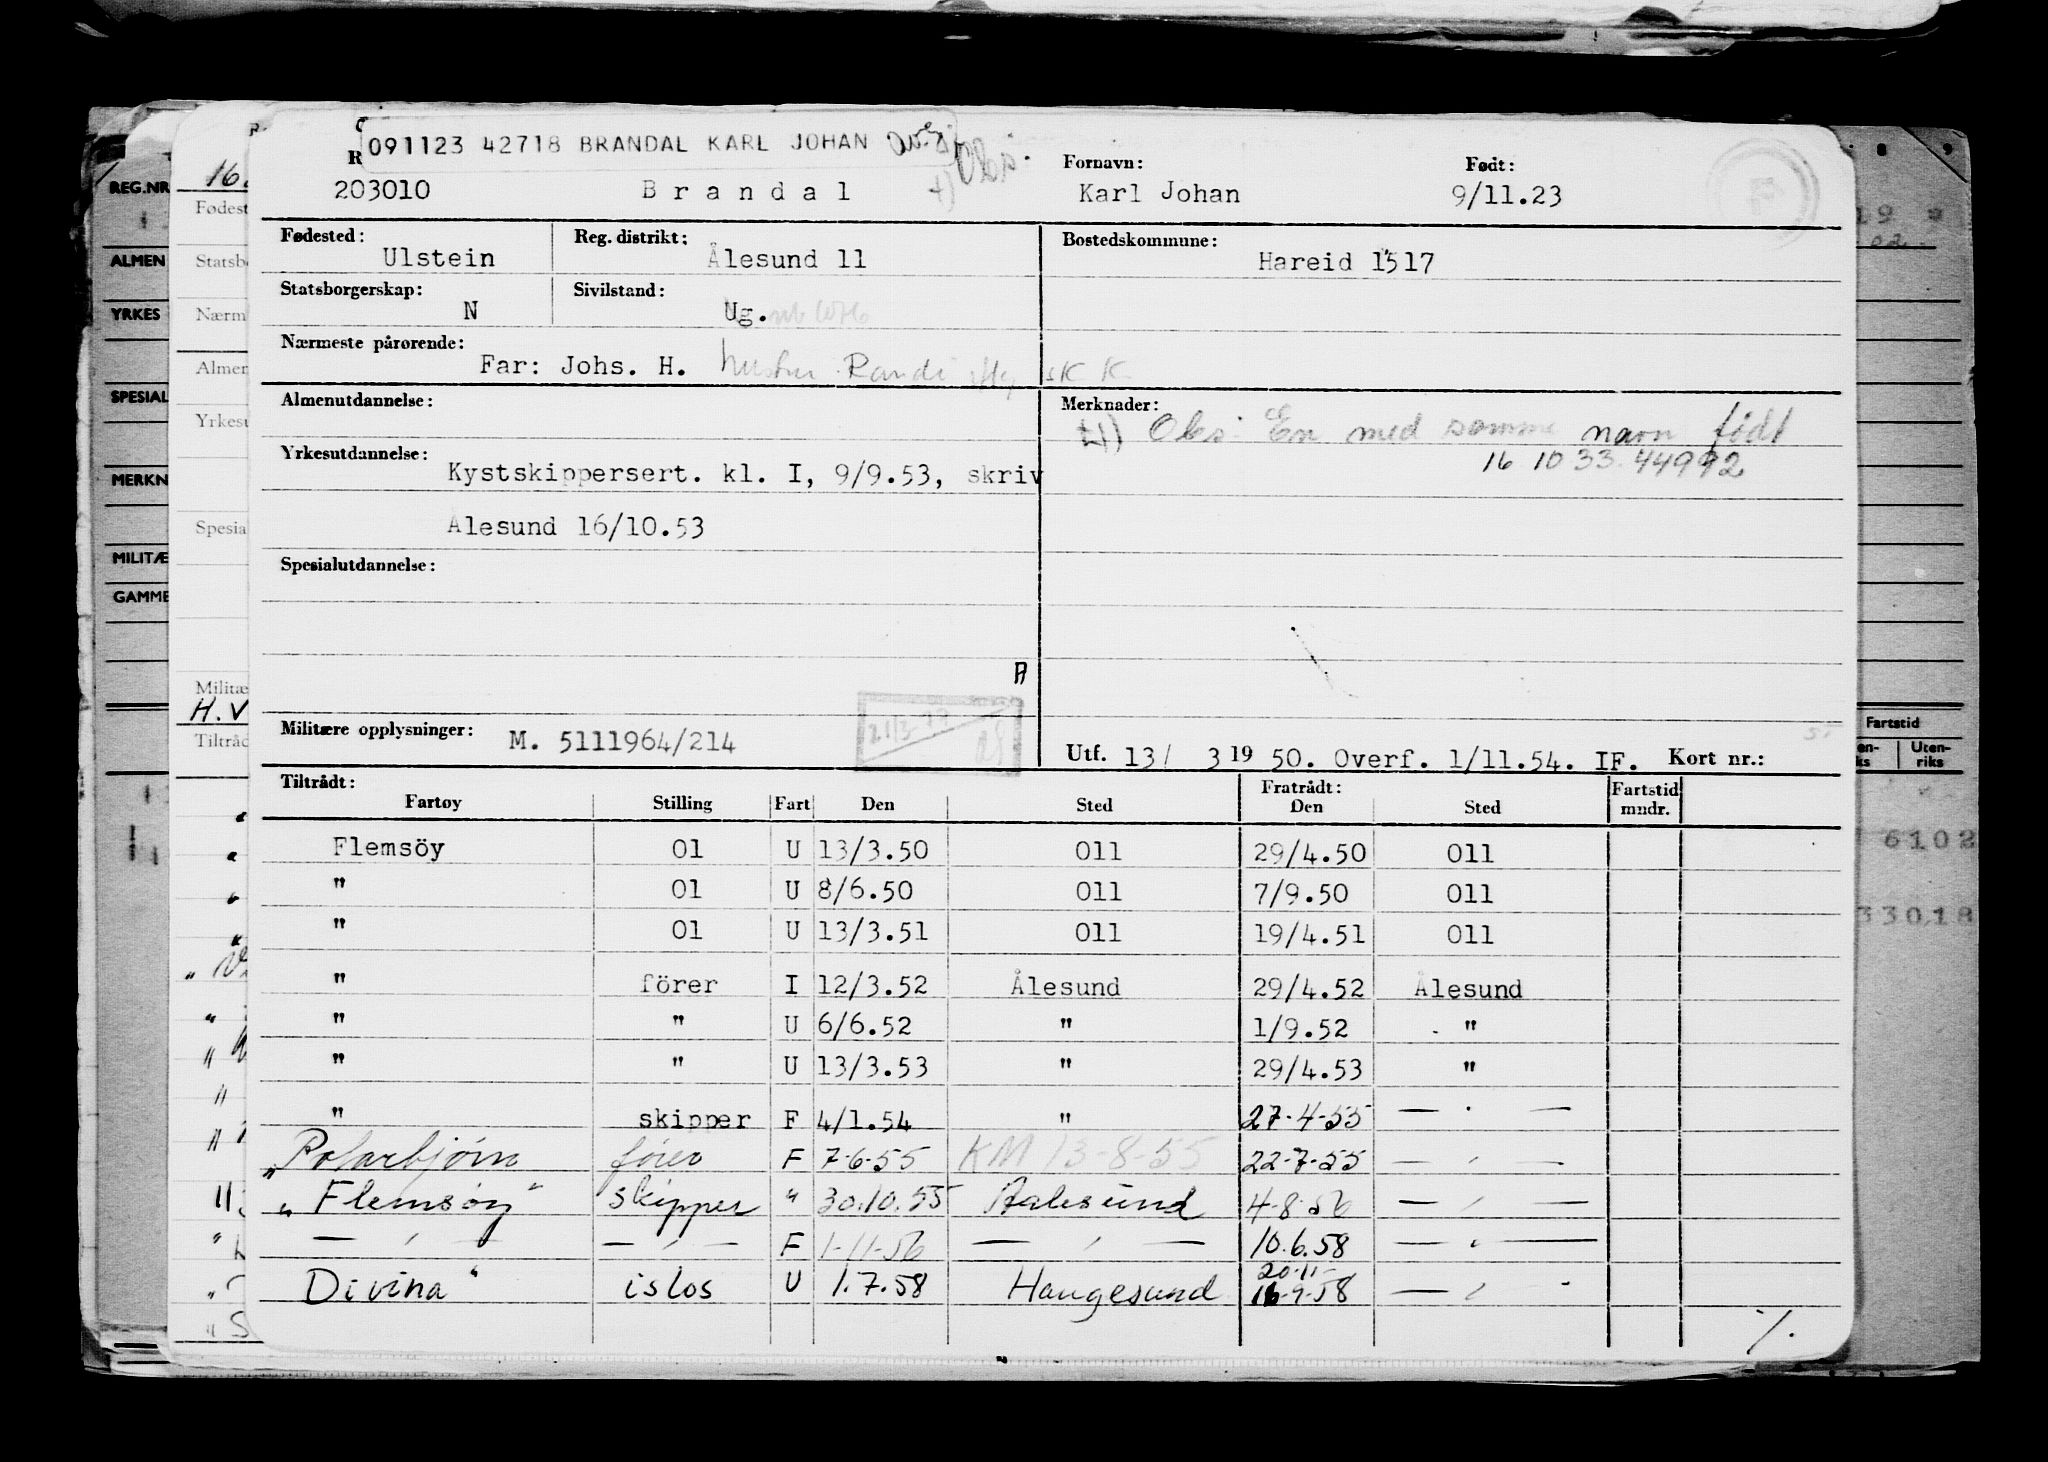 091123 42718 BRANDAL KARL JOHAN
Obs.
Fornavn: Født:
203010 Brandal +) Karl Johan 9/11.23
Fødested: Reg. distrikt: Bostedskommune:
Ulstein Ålesund 11 Hareid 1517
Statsborgerskap: Sivilstand:
N Ug.
Nærmeste pårørende:
Far: Johs. H. hustru Randi
Almenutdannelse: Merknader:
+) Obs: En med samme navn født
16 10 33. 44992
Yrkesutdannelse:
Kystskippersert. kl. I, 9/9.53, skriv
Ålesund 16/10.53
Spesialutdannelse:
A
Militære opplysninger: M. 5111964/214
Utf. 13/ 3 19 50. Overf. 1/11.54. IF. Kort nr.:
Tiltrådt: Fratrådt: Fartstid
Fartøy Stilling Fart Den Sted Den Sted mndr.
Flemsöy 01 U 13/3.50 011 29/4.50 011
" 01 U 8/6.50 011 7/9.50 011
" 01 U 13/3.51 011 19/4.51 011
" förer I 12/3.52 Ålesund 29/4.52 Ålesund
" " U 6/6.52 " 1/9.52 "
" " U 13/3.53 " 29/4.53 "
" skipper F 4/1.54 " 27-4-55 — " —
"Polarbjørn fører F 7-6-55 KM 13-8-55 22-7-55 — " —
"Flemsøy" skipper " 30.10.55 Aalesund 4-8-56 — " —
— " — — " — F 1-11-56 — " — 10.6.58 — " —
20-11-
Divina" islos U 1.7.58 Haugesund 16-9-58 — " -
%.
REG.NR
ALMEN
YRKES
SPESIAL
MERKN
MILITÆ
GAMME
16.
Fødest
Statsb
Nærm
Almen
Yrkesu
Spesia
Militæ
H.V
Tiltråd
8 9
19
02.
Fartstid
en-
ks
Uten-
riks
6102
33018